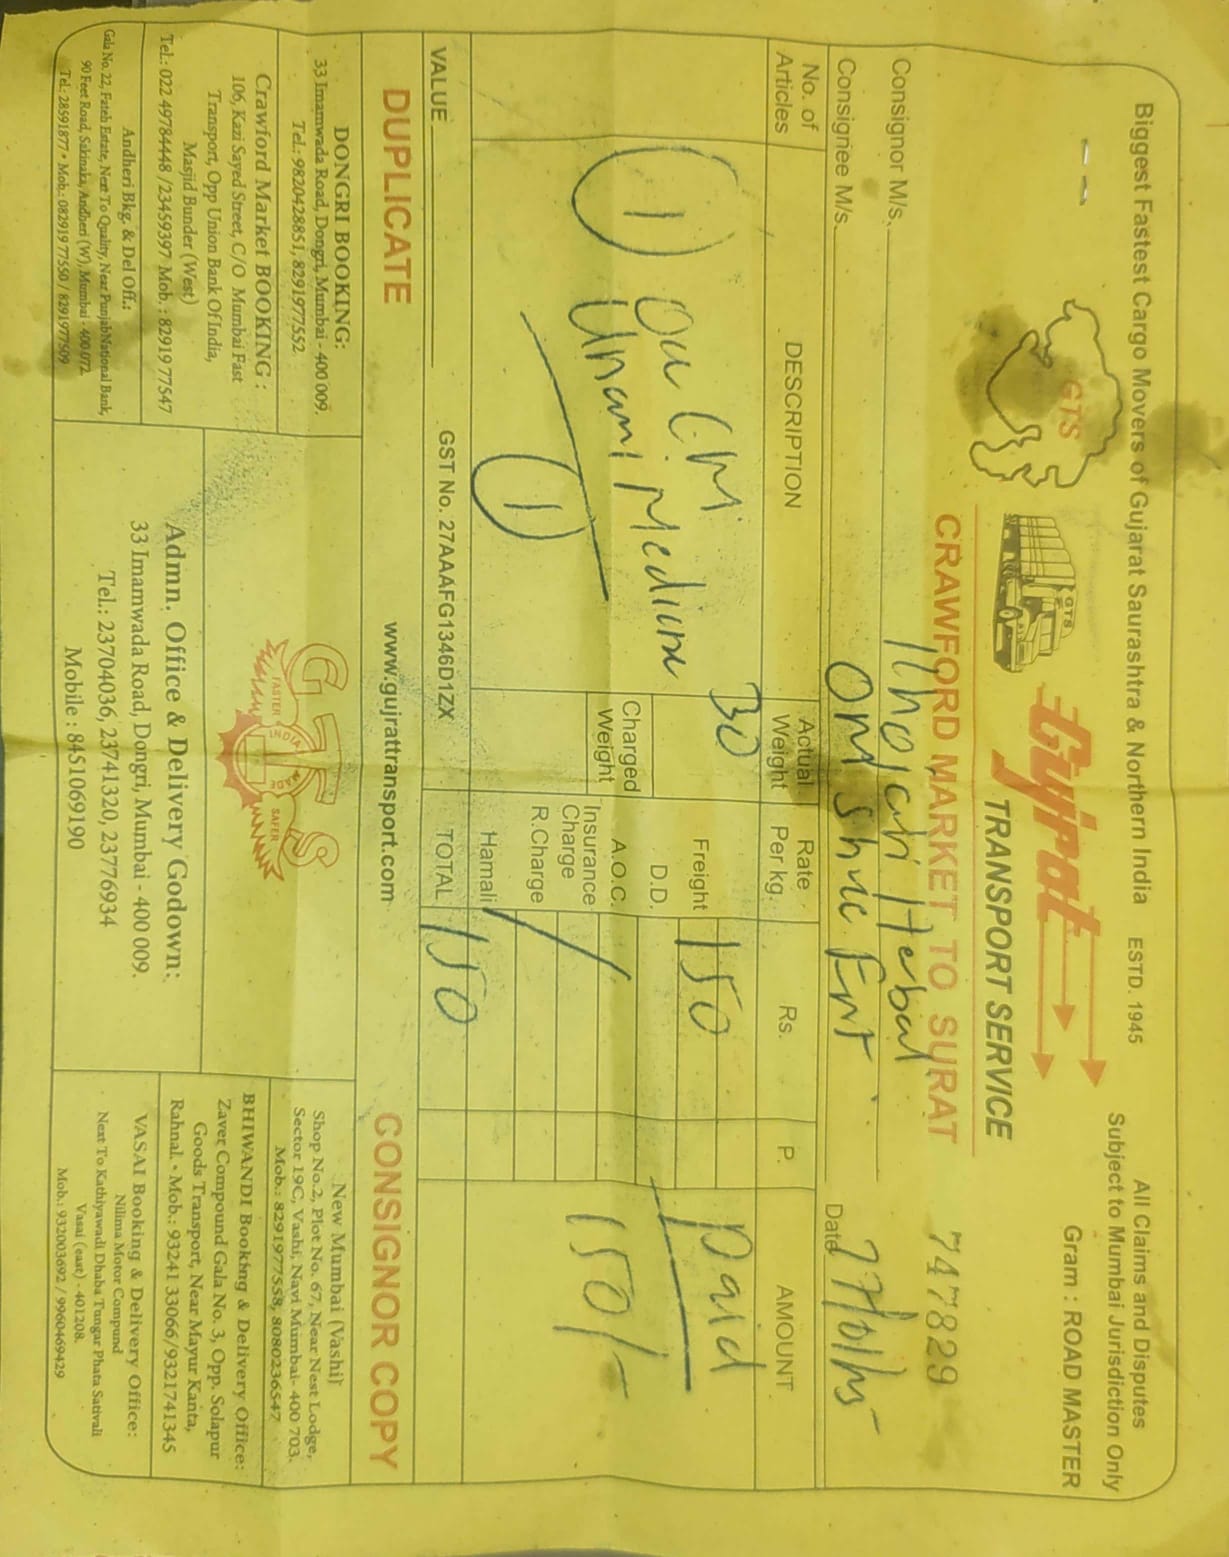 Biggest Fastest Cargo Movers of Gujarat Saurashtra & Northern India ESTD. 1945
All Claims and Disputes
Subject to Mumbai Jurisdiction Only
Gram : ROAD MASTER
GTS
GTS
Gujrat
TRANSPORT SERVICE
CRAWFORD MARKET TO SURAT
747829
Consignor M/s. Herbal
Consignee M/s. Om Shree Ent
Date
No. of Articles
DESCRIPTION
Actual Weight
Rate Per kg.
Rs.
P.
AMOUNT
1
Unani Medicine
1
30
Charged Weight
Freight 150
D.D.
A.O.C.
Insurance Charge
R.Charge
Hamali
Paid
150/-
VALUE
GST No. 27AAAFG1346D1ZX
TOTAL 150
DUPLICATE
www.gujrattransport.com
CONSIGNOR COPY
DONGRI BOOKING:
33 Imamwada Road, Dongri, Mumbai - 400 009.
Tel.: 9820428851, 8291977552
Crawford Market BOOKING :
106, Kazi Sayed Street, C/O Mumbai Fast
Transport, Opp Union Bank Of India,
Masjid Bunder (West)
Tel.: 022 49784448 /23459397 Mob. : 82919 77547
Andheri Bkg. & Del Off.:
Gala No. 22, Fateh Estate, Next To Quality, Near Punjab National Bank,
90 Feet Road, Sakinaka, Andheri (W), Mumbai - 400 072.
Tel.: 28591877 • Mob.: 082919 77550 / 8291977509
GTS
FASTER
INDIA
MADE
SAFER
Admn. Office & Delivery Godown:
33 Imamwada Road, Dongri, Mumbai - 400 009.
Tel.: 23704036, 23741320, 23776934
Mobile : 8451069190
New Mumbai (Vashi)
Shop No.2, Plot No. 67, Near Nest Lodge,
Sector 19C, Vashi, Navi Mumbai- 400 703.
Mob.: 8291977558, 8080236547
BHIWANDI Booking & Delivery Office:
Zaver Compound Gala No. 3, Opp. Solapur
Goods Transport, Near Mayur Kanta,
Rahnal. • Mob.: 93241 33066/9321741345
VASAI Booking & Delivery Office:
Nilima Motor Compund
Next To Kathiyawadi Dhaba Tungar Phata Sativali
Vasai (east) - 401208.
Mob.: 932003692 / 9960469429